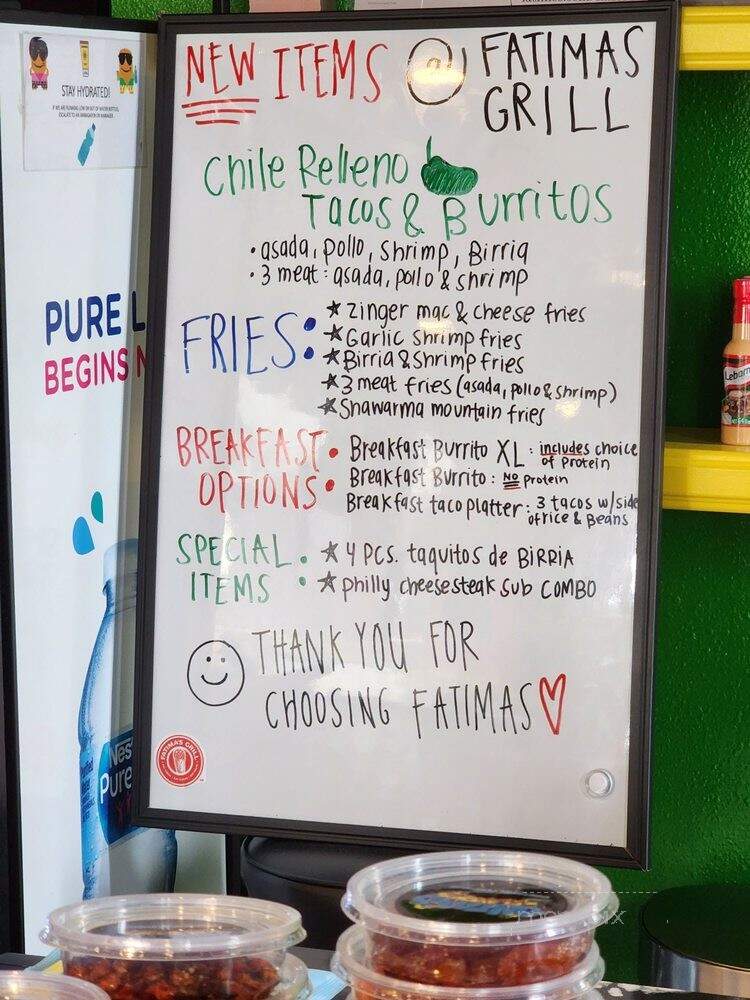 NEW ITEMS @ FATIMAS
GRILL
Chile Relleno
Tacos & Burritos
• asada, pollo, shrimp, Birria
• 3 meat: asada, pollo & shrimp
FRIES:
★ Zinger mac & cheese fries
★ Garlic shrimp fries
★ Birria & shrimp fries
★ 3 meat fries (asada, pollo & shrimp)
★ Shawarma mountain fries
BREAKFAST
OPTIONS:
Breakfast Burrito XL: includes choice
of protein
Breakfast Burrito: NO protein
Breakfast taco platter: 3 tacos w/side
of rice & Beans
SPECIAL
ITEMS:
★ 4 PCS. taquitos de BIRRIA
★ philly cheesesteak sub COMBO
THANK YOU FOR
CHOOSING FATIMAS
FATIMA'S GRILL
STAY HYDRATED!
IF WE ARE RUNNING LOW OR OUT OF WATER BOTTLES,
ESCALATE TO AN AMBASSADOR OR MANAGER.
PURE L
BEGINS
Nes
Pure